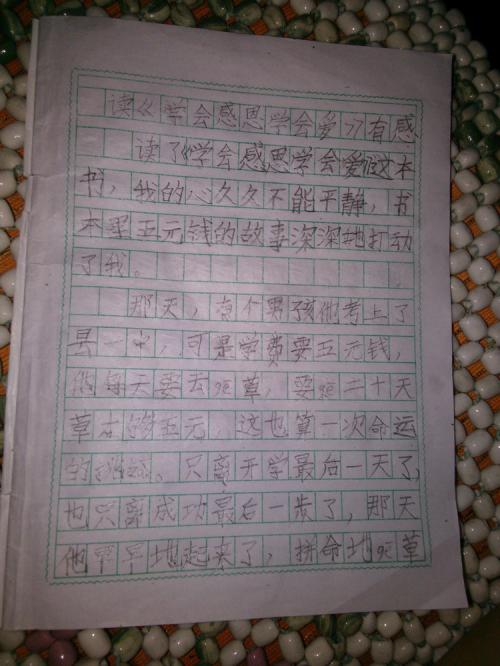 读《学会感恩学会爱》有感
读了《学会感恩学会爱》这本
书，我的心久久不能平静，书
本里五元钱的故事深深地打动
了我。
那天，有个男孩他考上了
县一中，可是学费要五元钱，
他每天要去 草，要 二十天
草才够五元，这也算一次命运
的 。只离开学最后一天了，
也只离成功最后一步了，那天
他早早地起来了，拼命地 草